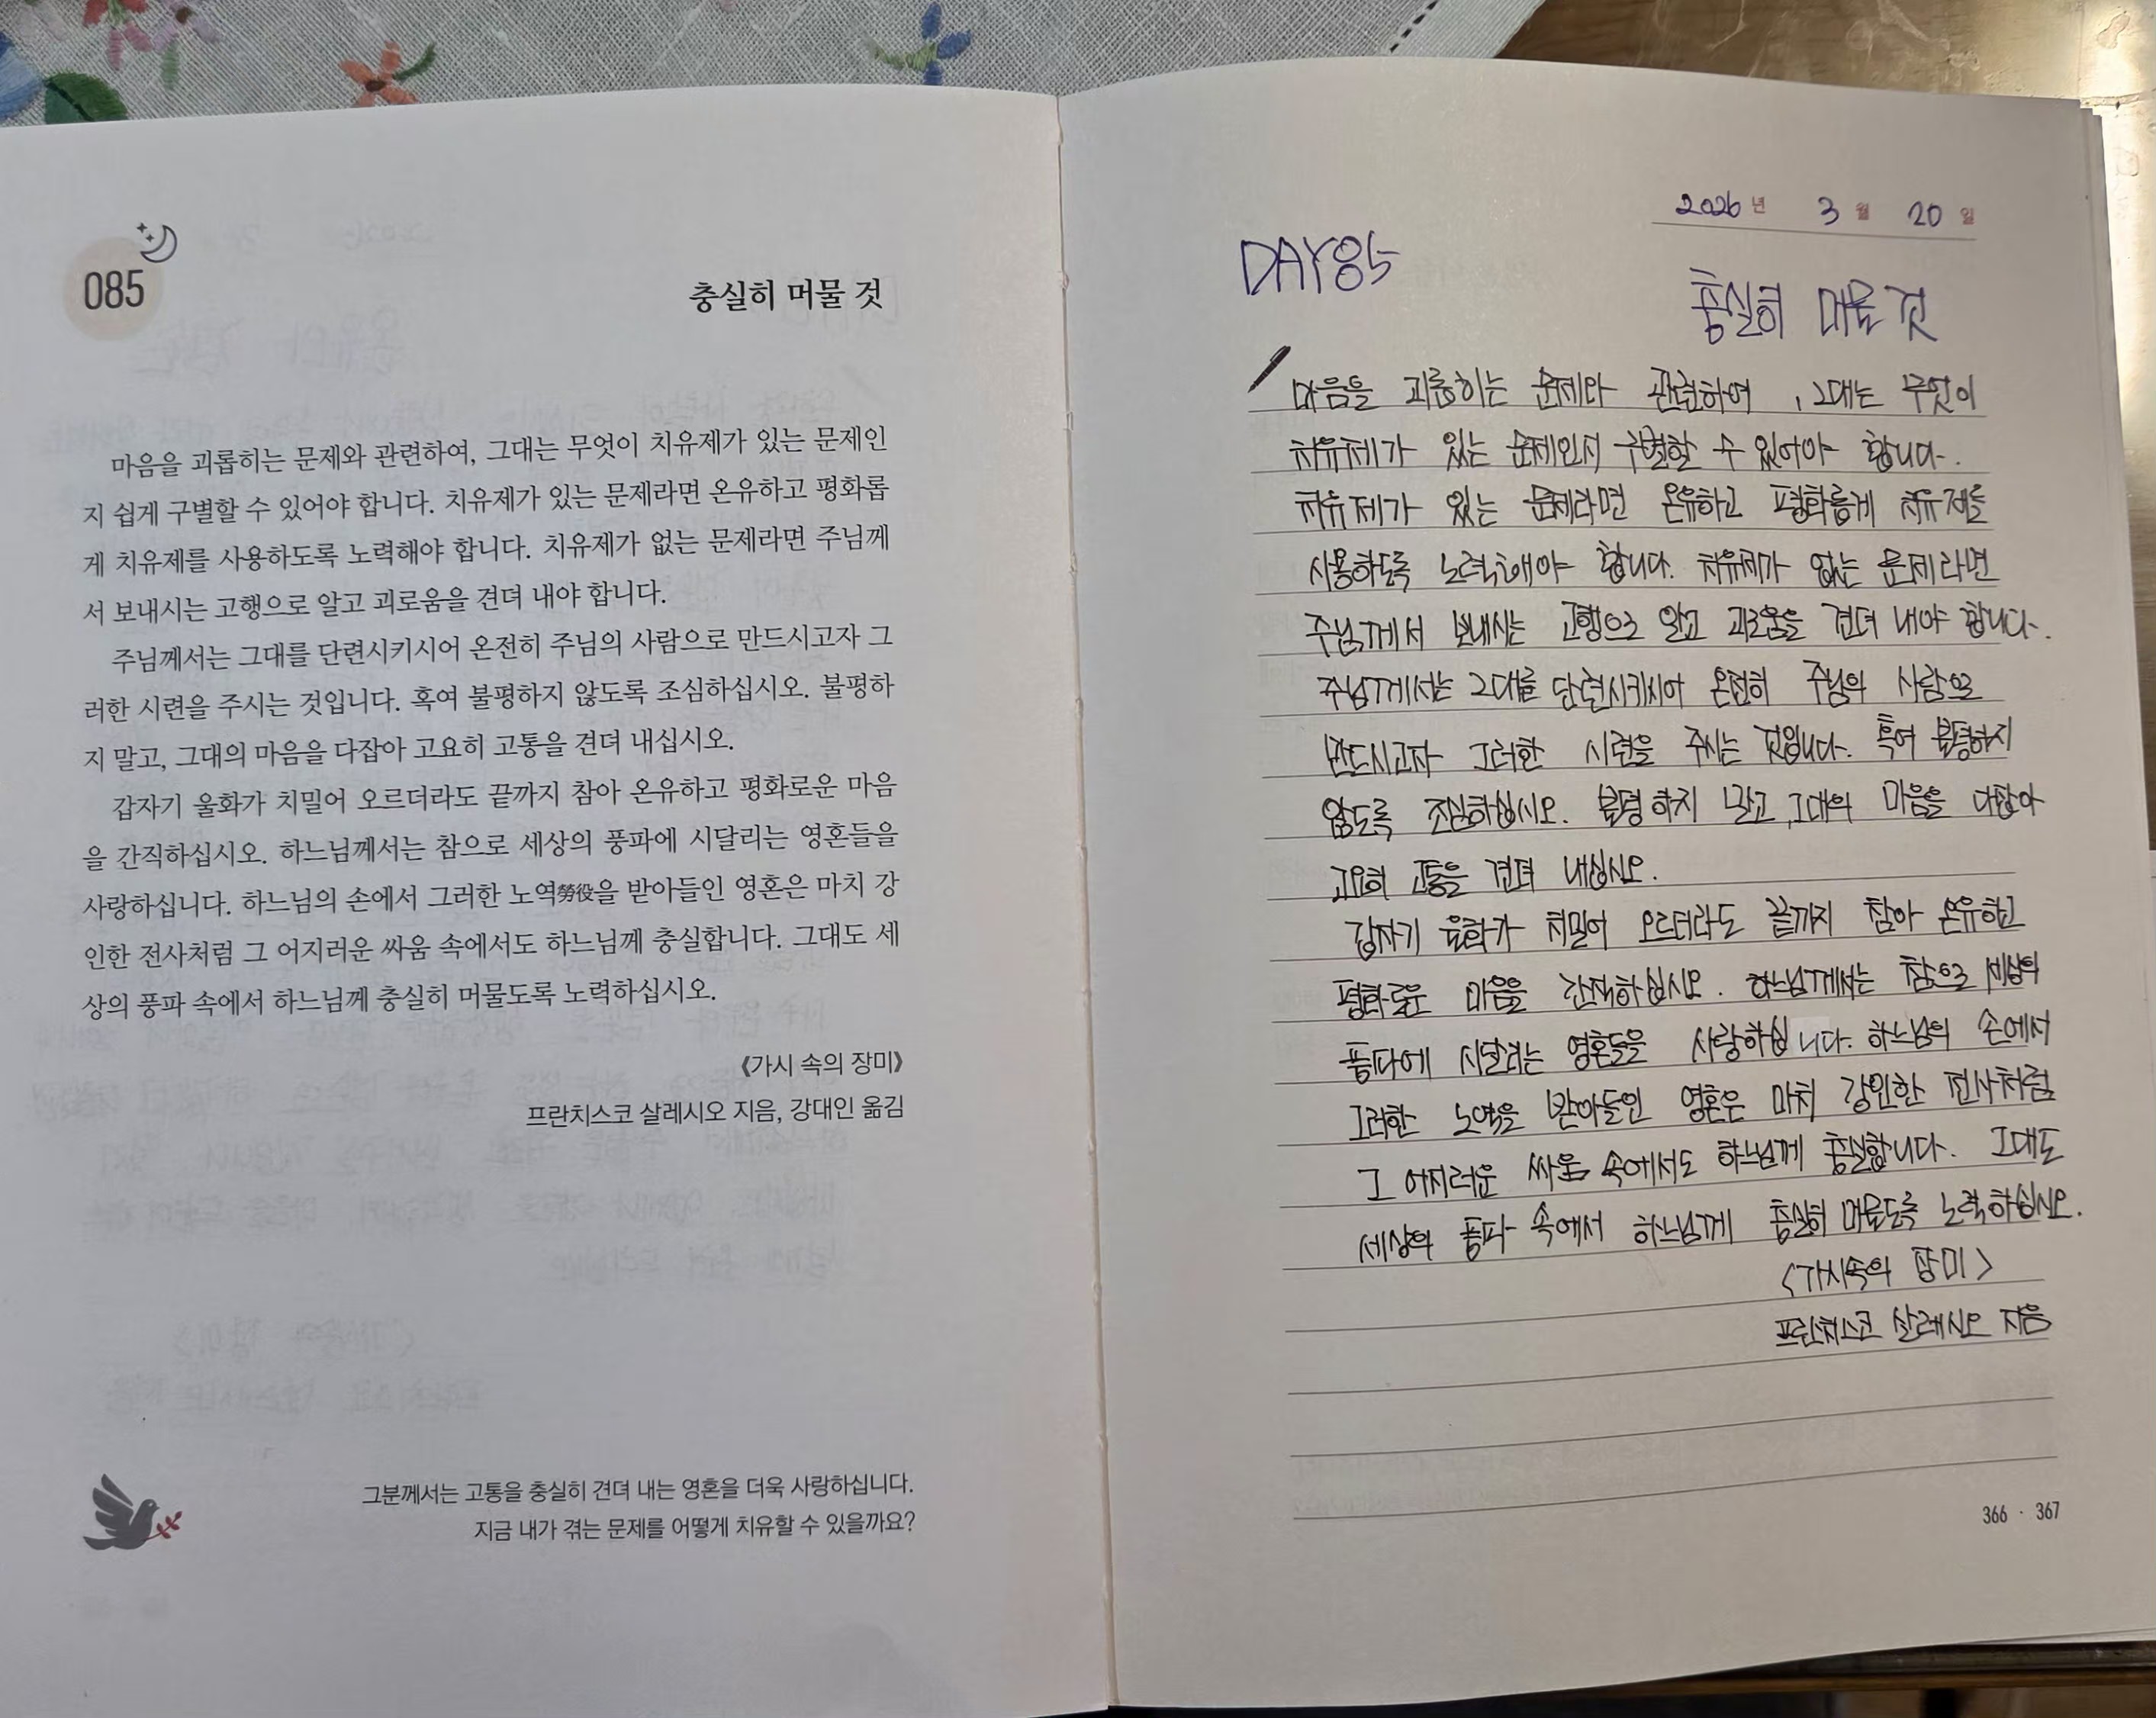 085
충실히 머물 것
마음을 괴롭히는 문제와 관련하여, 그대는 무엇이 치유제가 있는 문제인
지 쉽게 구별할 수 있어야 합니다. 치유제가 있는 문제라면 온유하고 평화롭
게 치유제를 사용하도록 노력해야 합니다. 치유제가 없는 문제라면 주님께
서 보내시는 고행으로 알고 괴로움을 견뎌 내야 합니다.
주님께서는 그대를 단련시키시어 온전히 주님의 사람으로 만드시고자 그
러한 시련을 주시는 것입니다. 혹여 불평하지 않도록 조심하십시오. 불평하
지 말고, 그대의 마음을 다잡아 고요히 고통을 견뎌 내십시오.
갑자기 울화가 치밀어 오르더라도 끝까지 참아 온유하고 평화로운 마음
을 간직하십시오. 하느님께서는 참으로 세상의 풍파에 시달리는 영혼들을
사랑하십니다. 하느님의 손에서 그러한 노역勞役을 받아들인 영혼은 마치 강
인한 전사처럼 그 어지러운 싸움 속에서도 하느님께 충실합니다. 그대도 세
상의 풍파 속에서 하느님께 충실히 머물도록 노력하십시오.
《가시 속의 장미》
프란치스코 살레시오 지음, 강대인 옮김
그분께서는 고통을 충실히 견뎌 내는 영혼을 더욱 사랑하십니다.
지금 내가 겪는 문제를 어떻게 치유할 수 있을까요?
2026년 3월 20일
DAY85
충실히 머물 것
마음을 괴롭히는 문제와 관련하여, 그대는 무엇이
치유제가 있는 문제인지 구별할 수 있어야 합니다.
치유제가 있는 문제라면 온유하고 평화롭게 치유제를
사용하도록 노력해야 합니다. 치유제가 없는 문제라면
주님께서 보내시는 고행으로 알고 괴로움을 견뎌 내야 합니다.
주님께서는 그대를 단련시키시어 온전히 주님의 사람으로
만드시고자 그러한 시련을 주시는 것입니다. 혹여 불평하지
않도록 조심하십시오. 불평하지 말고, 그대의 마음을 다잡아
고요히 고통을 견뎌 내십시오.
갑자기 울화가 치밀어 오르더라도 끝까지 참아 온유하고
평화로운 마음을 간직하십시오. 하느님께서는 참으로 세상의
풍파에 시달리는 영혼들을 사랑하십니다. 하느님의 손에서
그러한 노역을 받아들인 영혼은 마치 강인한 전사처럼
그 어지러운 싸움 속에서도 하느님께 충실합니다. 그대도
세상의 풍파 속에서 하느님께 충실히 머물도록 노력하십시오.
<가시속의 장미>
프란치스코 살레시오 지음
366 · 367